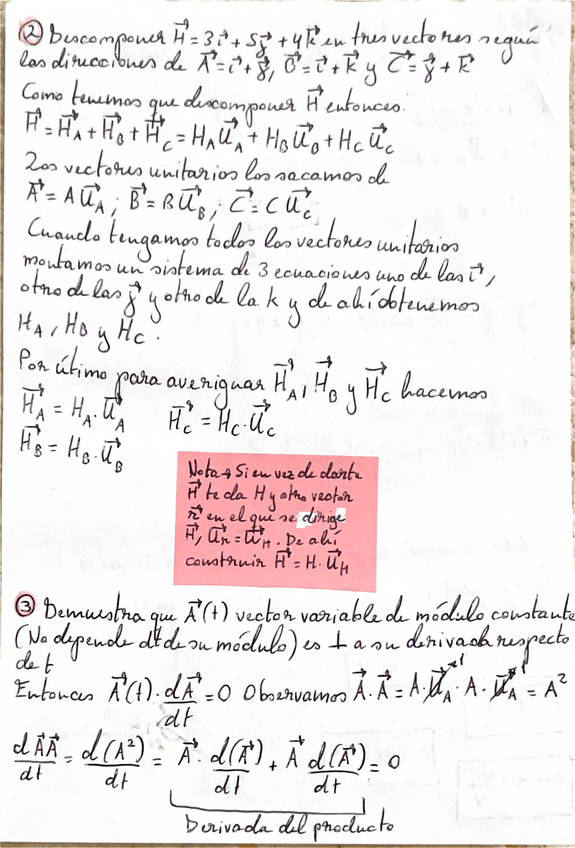 ② Descomponer H⃗ = 3i⃗ + 5j⃗ + 4k⃗ en tres vectores según
las direcciones de A⃗ = i⃗ + j⃗, B⃗ = i⃗ + k⃗ y C⃗ = j⃗ + k⃗
Como tenemos que descomponer H⃗ entonces.
H⃗ = H⃗_A + H⃗_B + H⃗_C = H_A U⃗_A + H_B U⃗_B + H_C U⃗_C
Los vectores unitarios los sacamos de
A⃗ = A U⃗_A ; B⃗ = B U⃗_B ; C⃗ = C U⃗_C
Cuando tengamos todos los vectores unitarios
montamos un sistema de 3 ecuaciones uno de las i⃗,
otro de las j⃗ y otro de la k y de ahí obtenemos
H_A, H_B y H_C.
Por útimo para averiguar H⃗_A, H⃗_B y H⃗_C hacemos
H⃗_A = H_A · U⃗_A H⃗_C = H_C · U⃗_C
H⃗_B = H_B · U⃗_B
Nota → Si en vez de darte
H⃗ te da H y otro vector
r⃗ en el que se dirige
H⃗, U⃗_r = U⃗_H. De ahí
construir H⃗ = H · U⃗_H
③ Demuestra que A⃗(t) vector variable de módulo constante
(No depende dt de su módulo) es ⊥ a su derivada respecto
de t
Entonces A⃗(t) · dA⃗/dt = 0 Observamos A⃗ · A⃗ = A · U⃗_A¹ · A · U⃗_A¹ = A²
dA⃗A⃗/dt = d(A²)/dt = A⃗ · d(A⃗)/dt + A⃗ d(A⃗)/dt = 0
Derivada del producto